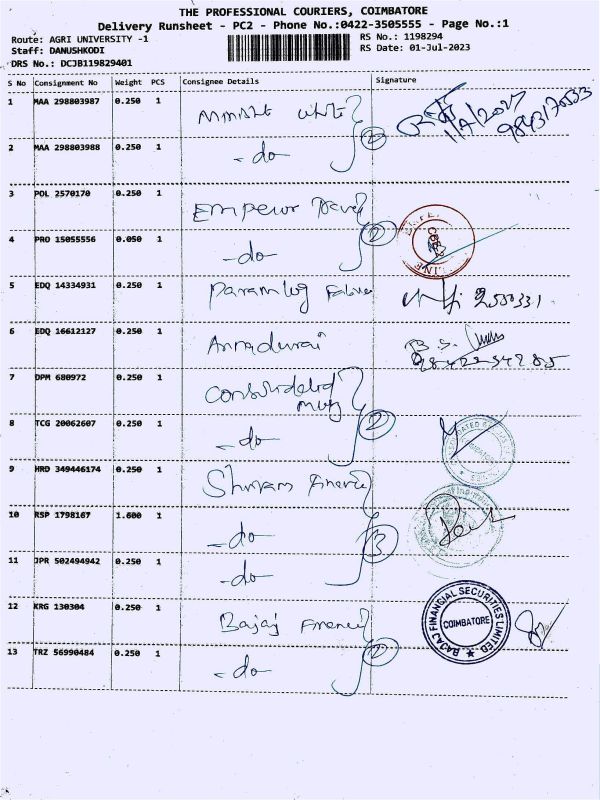 THE PROFESSIONAL COURIERS, COIMBATORE
Delivery Runsheet - PC2 - Phone No.:0422-3505555 - Page No.:1
Route: AGRI UNIVERSITY -1
RS No.: 1198294
Staff: DANUSHKODI
RS Date: 01-Jul-2023
DRS No.: DCJB119829401
S No Consignment No Weight PCS Consignee Details Signature
1 MAA 298803987 0.250 1
2 MAA 298803988 0.250 1 - do - 2
3 POL 2570170 0.250 1 Emperor
4 PRO 15055556 0.050 1 - do - 2
5 EDQ 14334931 0.250 1
6 EDQ 16612127 0.250 1 Annadurai
7 DPM 680972 0.250 1
8 TCG 20062607 0.250 1 - do - 2
9 HRD 349446174 0.250 1 Shriram
10 RSP 1798167 1.600 1 - do - 3
11 JPR 502494942 0.250 1 - do -
12 KRG 130304 0.250 1 Bajaj BAJAJ FINANCIAL SECURITIES LIMITED COIMBATORE
13 TRZ 56990484 0.250 1 - do - 2